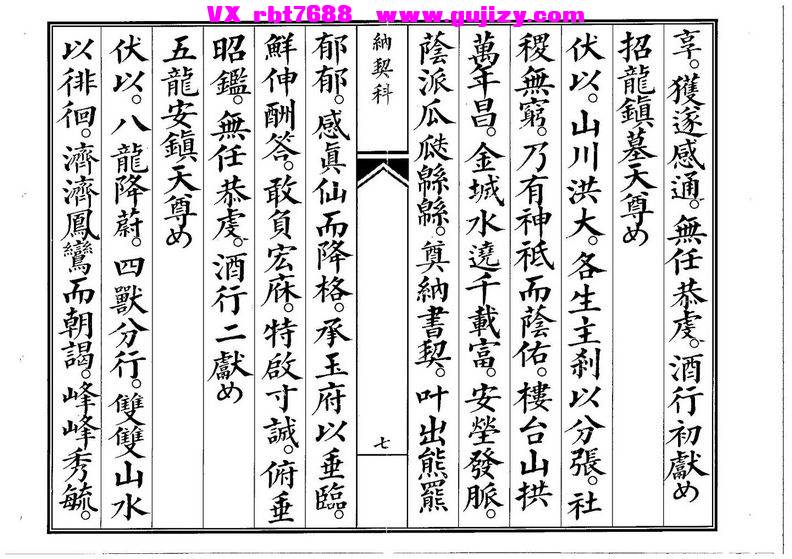 VX rbt7688 www.gujizy.com
享。獲遂感通。無任恭虔。酒行初獻め
招龍鎮墓天尊め
伏以。山川洪大。各生主刹以分張。社
稷無窮。乃有神祗而蔭佑。樓台山拱
萬年昌。金城水遶千載富。安塋發脈。
蔭派瓜瓞緜緜。奠納書契。叶出熊羆
納契科
七
郁郁。感眞仙而降格。承玉府以垂臨。
鮮伸酬答。敢負宏庥。特啟寸誠。俯垂
昭鑑。無任恭虔。酒行二獻め
五龍安鎮天尊め
伏以。八龍降蔚。四獸分行。雙雙山水
以徘徊。濟濟鳳鸞而朝謁。峰峰秀毓。